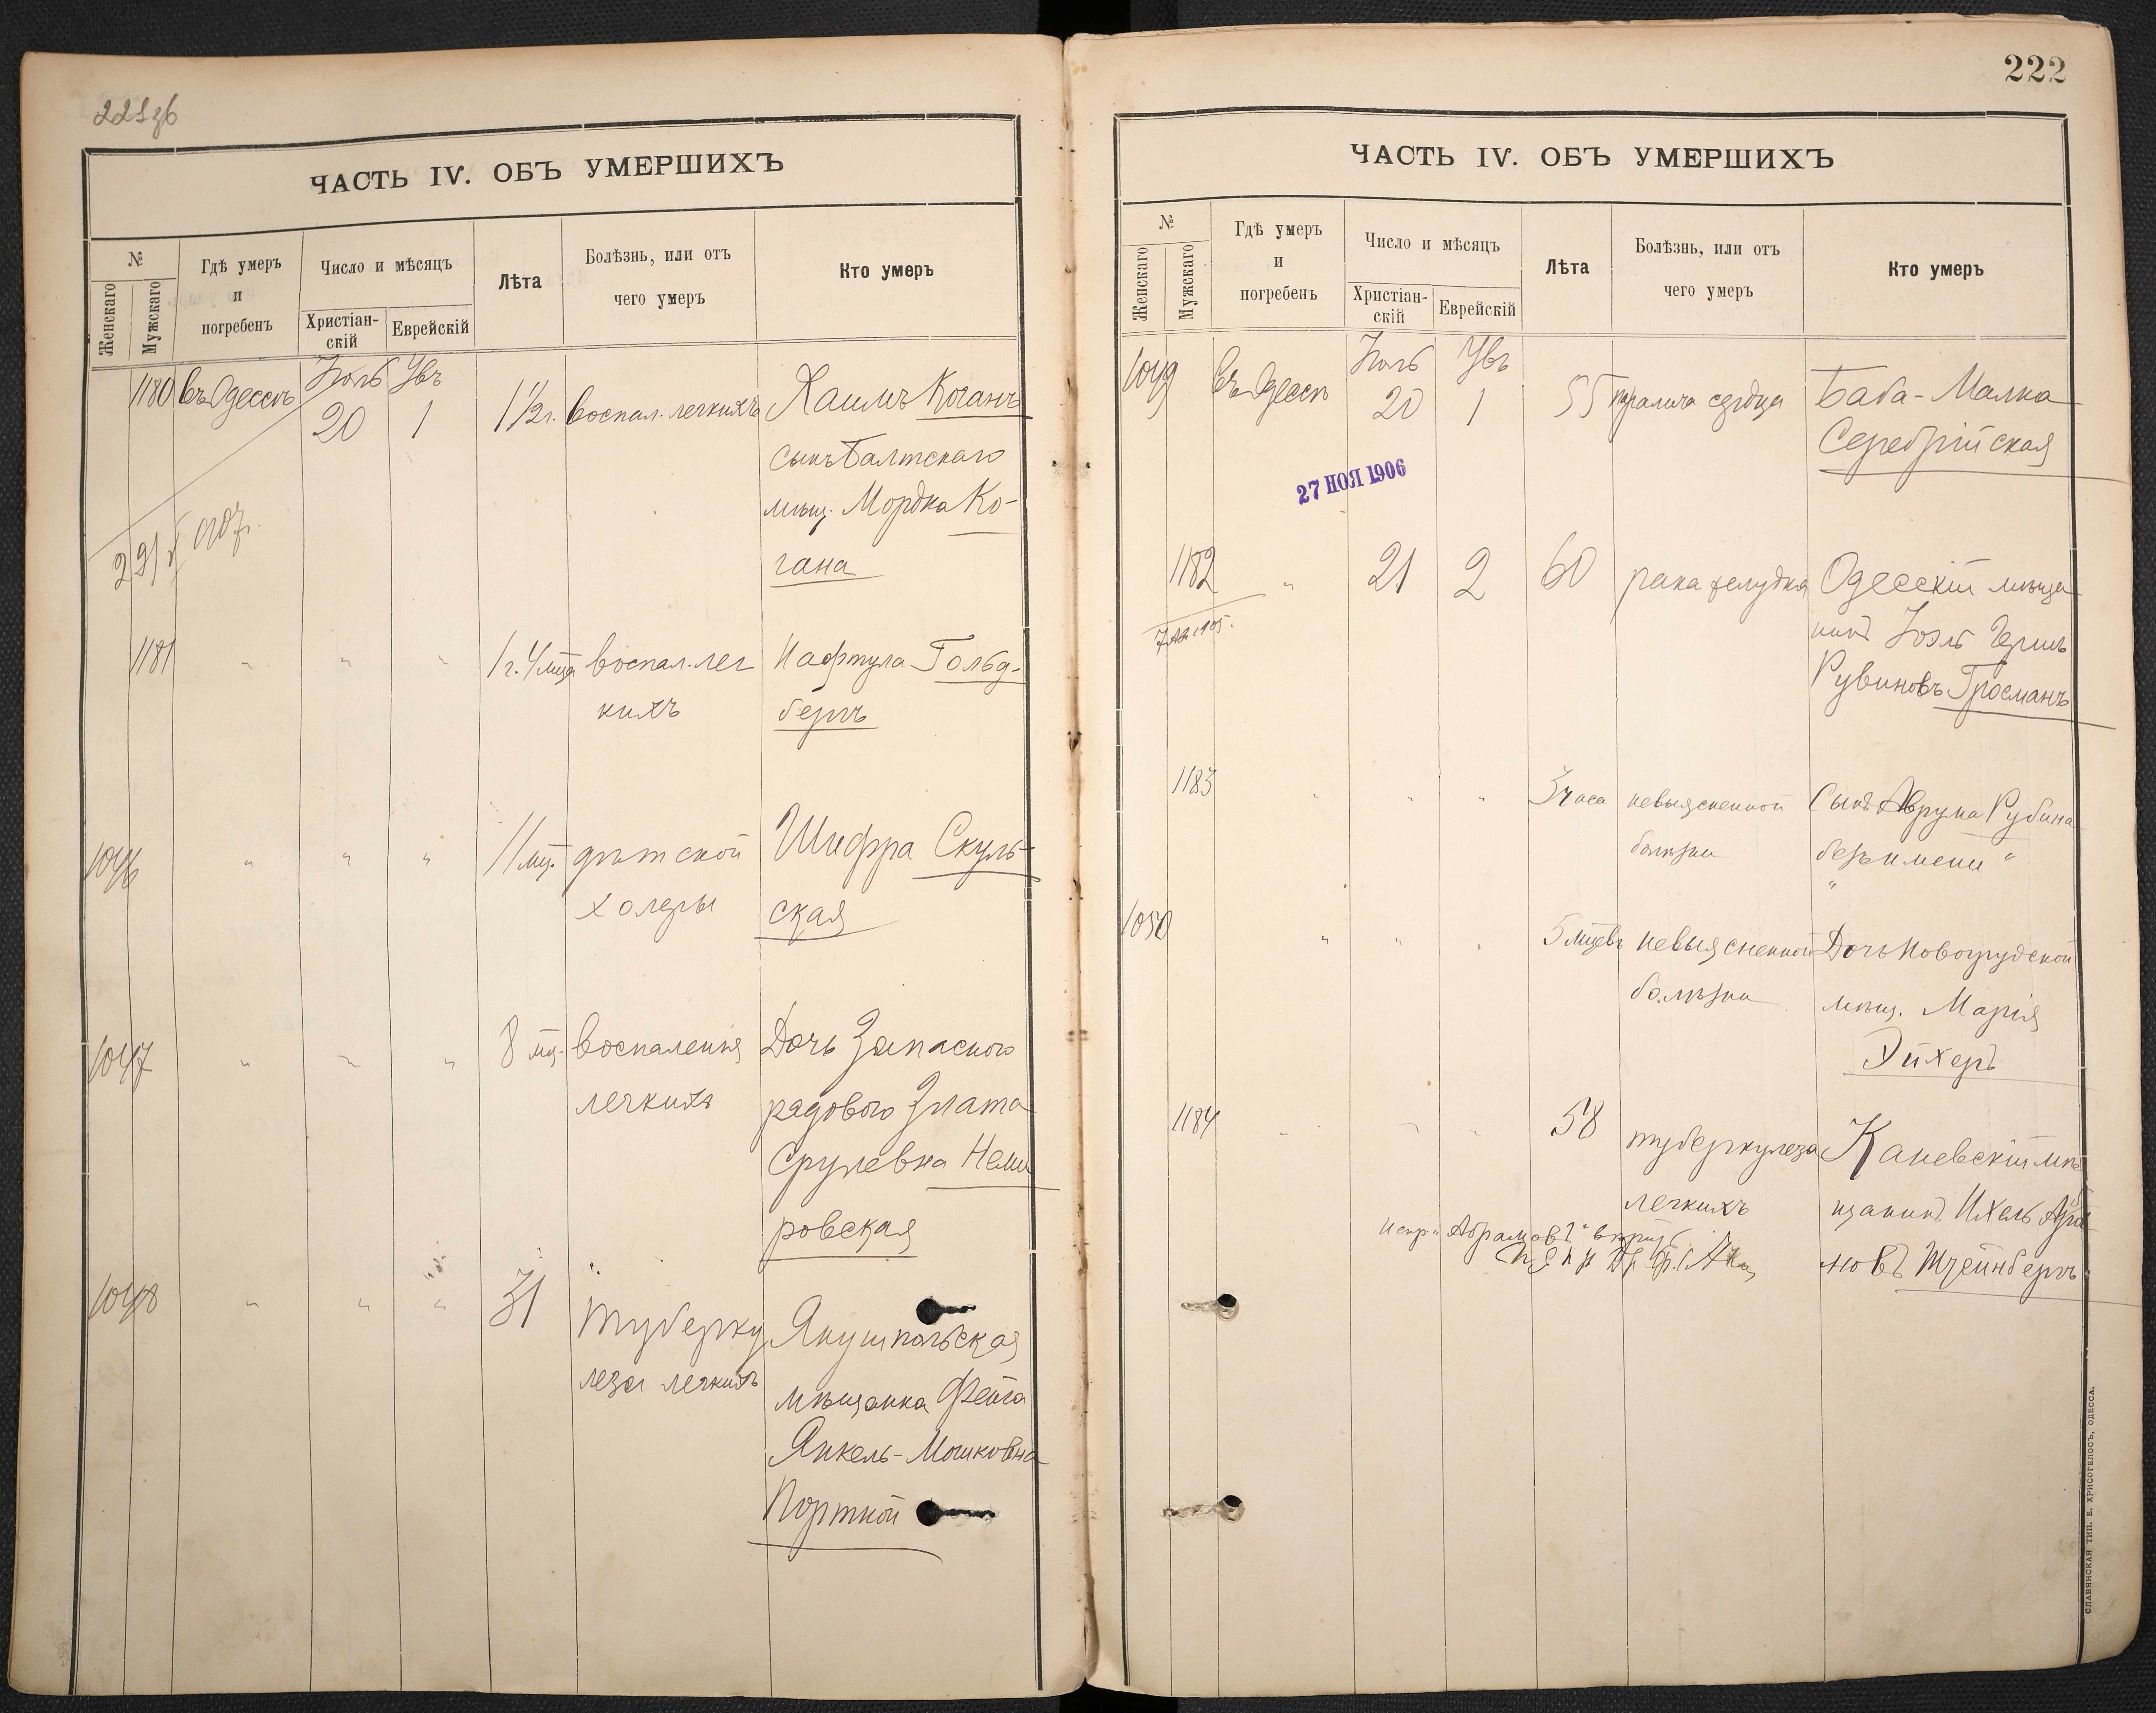 ЧАСТЬ IV. ОБЪ УМЕРШИХЪ
№
Женскаго
Мужскаго
Гдѣ умеръ
и
погребенъ
Число и мѣсяцъ
Христіан-
скій
Еврейскій
Лѣта
Болѣзнь, или отъ
чего умеръ
Кто умеръ
1180 въ Одессѣ Іюль 20 1 1½ г. воспал. легкихъ Хаимъ Коганъ
сынъ Балтскаго
мѣщ. Мордка Ко-
гана
1181 " " " воспал. лег
кихъ
Нафтула Гольд-
бергъ
1046 " " " 11 мц. дѣтской
холеры
Шифра Скуль-
ская
1047 " " " 8 мц. воспаленія
легкихъ
Дочь Запасного
рядового Злата
Срулевна Неми
ровская
1048 " " " 31 туберку
леза легкихъ
Янушпольская
мѣщанка Фейга
Янкель-Мошковна
Портной
222
ЧАСТЬ IV. ОБЪ УМЕРШИХЪ
№
Женскаго
Мужскаго
Гдѣ умеръ
и
погребенъ
Число и мѣсяцъ
Христіан-
скій
Еврейскій
Лѣта
Болѣзнь, или отъ
чего умеръ
Кто умеръ
1049 въ Одессѣ Іюль 20 1 55 паралича сердца Баба-Малка
Серебрійская
27 НОЯ 1906
1182 " 21 2 60 рака желудка Одесскій мѣща
нинъ Іоэль Герш
Рувиновъ Гросманъ
1183 " " " 3 часа невыясненной
болѣзни
Сынъ Аврума Рубина
безъ имени "
1050 " " " 5 мцевъ невыясненной
болѣзни
Дочь Новогрудской
мѣщ. Марія
Эйхеръ
1184 " " " 58 туберкулеза
легкихъ
Каневскій мѣ
щанинъ Ихель Абра
мовъ Штейнбергъ
испр. "Абрамовъ" вѣрно
СЛАВЯНСКАЯ ТИП. Е. ХРИСОГЕЛОСЪ, ОДЕССА.